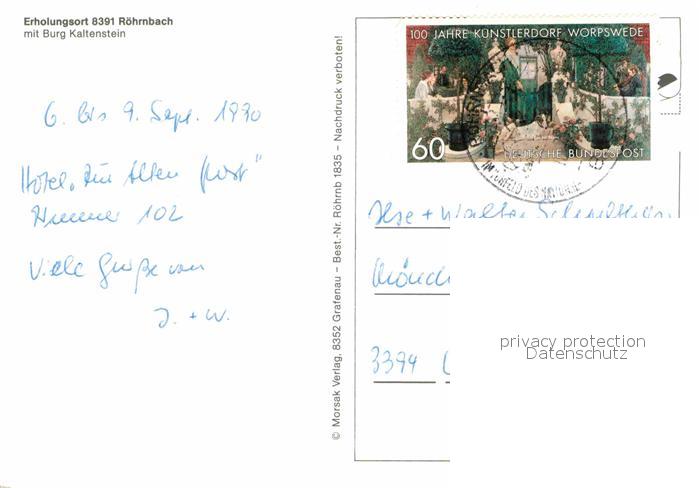 Erholungsort 8391 Röhrnbach
mit Burg Kaltenstein
6. bis 9. Sept. 1990
Hotel „Zur Alten Post"
Nummer 102
Viele Grüße von
I. + W.
© Morsak Verlag, 8352 Grafenau – Best.-Nr. Röhrnb 1835 – Nachdruck verboten!
100 JAHRE KÜNSTLERDORF WORPSWEDE
60 DEUTSCHE BUNDESPOST
Ilse + Walter
3394
privacy protection
Datenschutz